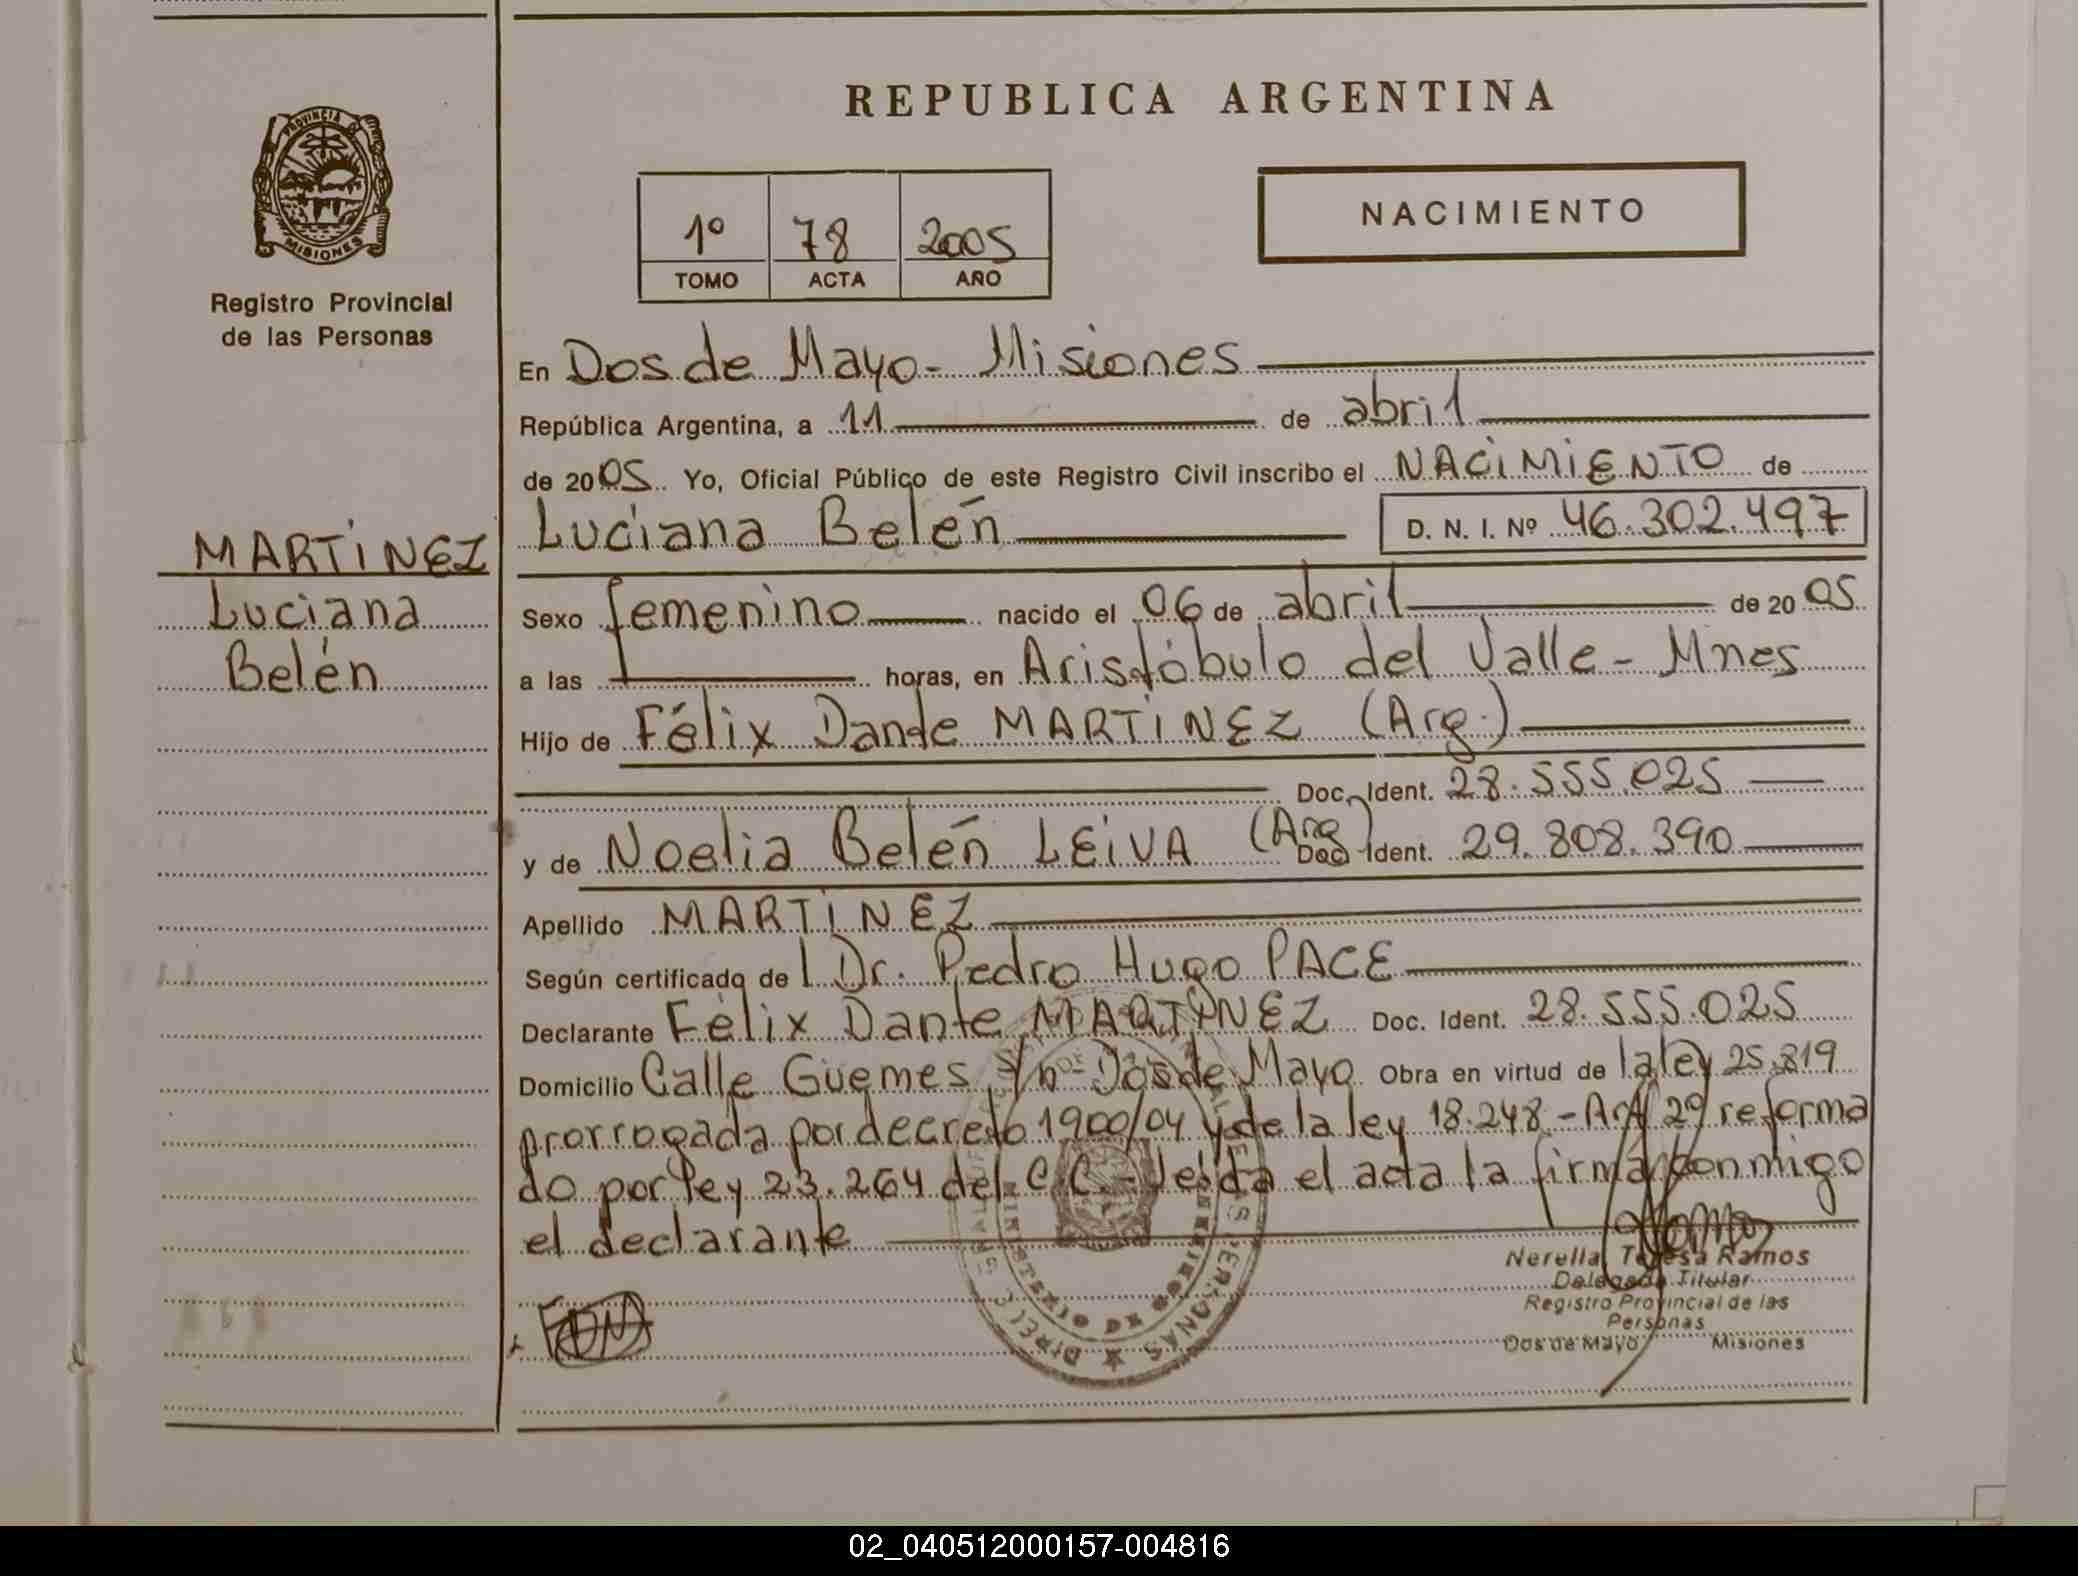 REPUBLICA ARGENTINA
PROVINCIA DE
MISIONES
Registro Provincial
de las Personas
1º 78 2005
TOMO ACTA AÑO
NACIMIENTO
En Dos de Mayo - Misiones
República Argentina, a 11 de abril
de 2005 Yo, Oficial Público de este Registro Civil inscribo el NACIMIENTO de
MARTINEZ
Luciana
Belén
Luciana Belén D. N. I. Nº 46.302.497
Sexo femenino nacido el 06 de abril de 2005
a las horas, en Aristóbulo del Valle - Mnes
Hijo de Félix Dante MARTINEZ (Arg.)
Doc. Ident. 28.555.025
y de Noelia Belén LEIVA (Arg) Doc Ident. 29.808.390
Apellido MARTINEZ
Según certificado de l Dr. Pedro Hugo PACE
Declarante Félix Dante MARTINEZ Doc. Ident. 28.555.025
Domicilio Calle Güemes s/nº Dos de Mayo Obra en virtud de la ley 25.819
prorrogada por decreto 1900/04 y de la ley 18.248 - Art 2º reforma
do por ley 23.264 del C.C. - Leída el acta la firma conmigo
el declarante
Nerella Teresa Ramos
Delegada Titular
Registro Provincial de las
Personas
Dos de Mayo Misiones
02_040512000157-004816